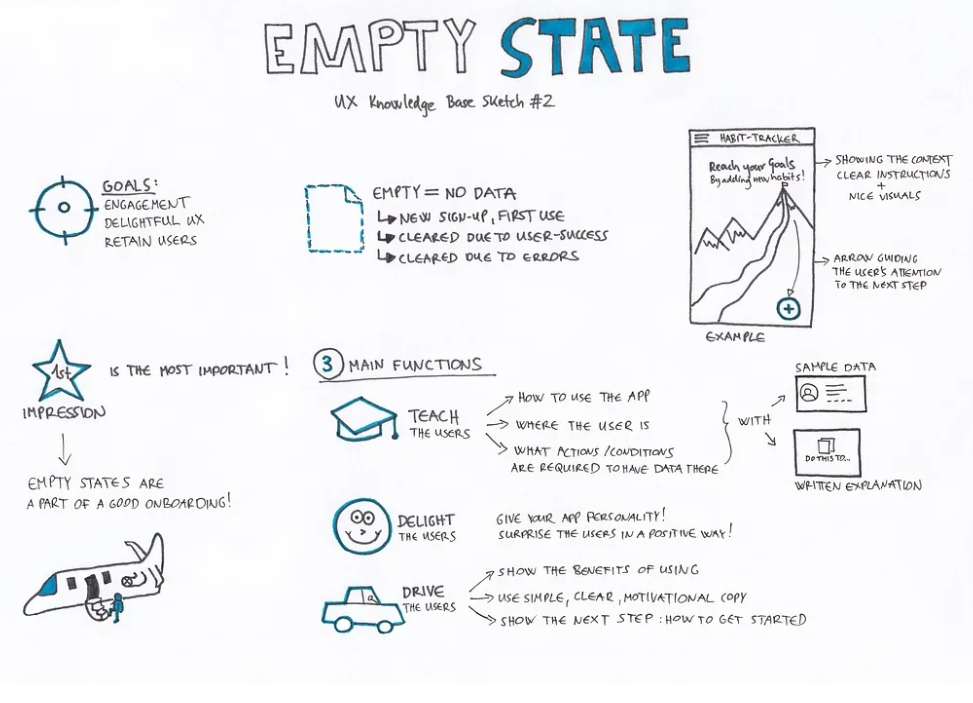 EMPTY STATE
UX Knowledge Base Sketch #2
GOALS:
ENGAGEMENT
DELIGHTFUL UX
RETAIN USERS
EMPTY = NO DATA
NEW SIGN-UP, FIRST USE
CLEARED DUE TO USER-SUCCESS
CLEARED DUE TO ERRORS
HABIT-TRACKER
Reach your Goals
By adding new habits!
EXAMPLE
SHOWING THE CONTEXT
CLEAR INSTRUCTIONS
+
NICE VISUALS
ARROW GUIDING
THE USER'S ATTENTION
TO THE NEXT STEP
1st
IMPRESSION
IS THE MOST IMPORTANT!
EMPTY STATES ARE
A PART OF A GOOD ONBOARDING!
3 MAIN FUNCTIONS
TEACH
THE USERS
HOW TO USE THE APP
WHERE THE USER IS
WHAT ACTIONS/CONDITIONS
ARE REQUIRED TO HAVE DATA THERE
WITH
SAMPLE DATA
DO THIS TO...
WRITTEN EXPLANATION
DELIGHT
THE USERS
GIVE YOUR APP PERSONALITY!
SURPRISE THE USERS IN A POSITIVE WAY!
DRIVE
THE USERS
SHOW THE BENEFITS OF USING
USE SIMPLE, CLEAR, MOTIVATIONAL COPY
SHOW THE NEXT STEP: HOW TO GET STARTED